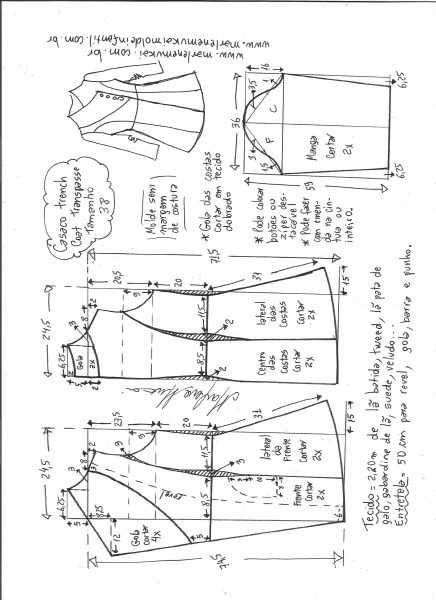 www.marlenemukai.com.br
www.marlenemukaimoldeinfantil.com.br
Casaco Trench
Coat Transpasse
Tamanho
38
Molde sem
margem
de costura
* Gola das costas
Cortar em tecido
dobrado
* Pode colocar
botões ou
zíper des-
tacável
* Pode fazer
com emen-
da na cin-
tura ou
inteiro.
16
1
3,5
C
36
F
3
1,5
Manga
Cortar
2x
6,25
6,25
59
71,5
20,5
20
31
15
24,5
8
2
3
9
6,25
2
Gola
2x
5
2
11,5
2
8,5
2
lateral
das
Costas
Cortar
2x
Centro
das
Costas
Cortar
2x
Marlene Mukai
23,5
20
31
15
24,5
8
2
3
3
9
3
6,25
5
8,25
12
Gola
cortar
4x
revel
11,5
3
8,5
5
10
8
lateral
da
Frente
Cortar
2x
Frente
Cortar
2x
6
74,5
Tecido = 2,20m de lã batida, tweed, lã pata de
galo, gabardine de lã, suede, veludo...
Entretela = 50 cm para revel, gola, barra e punho.